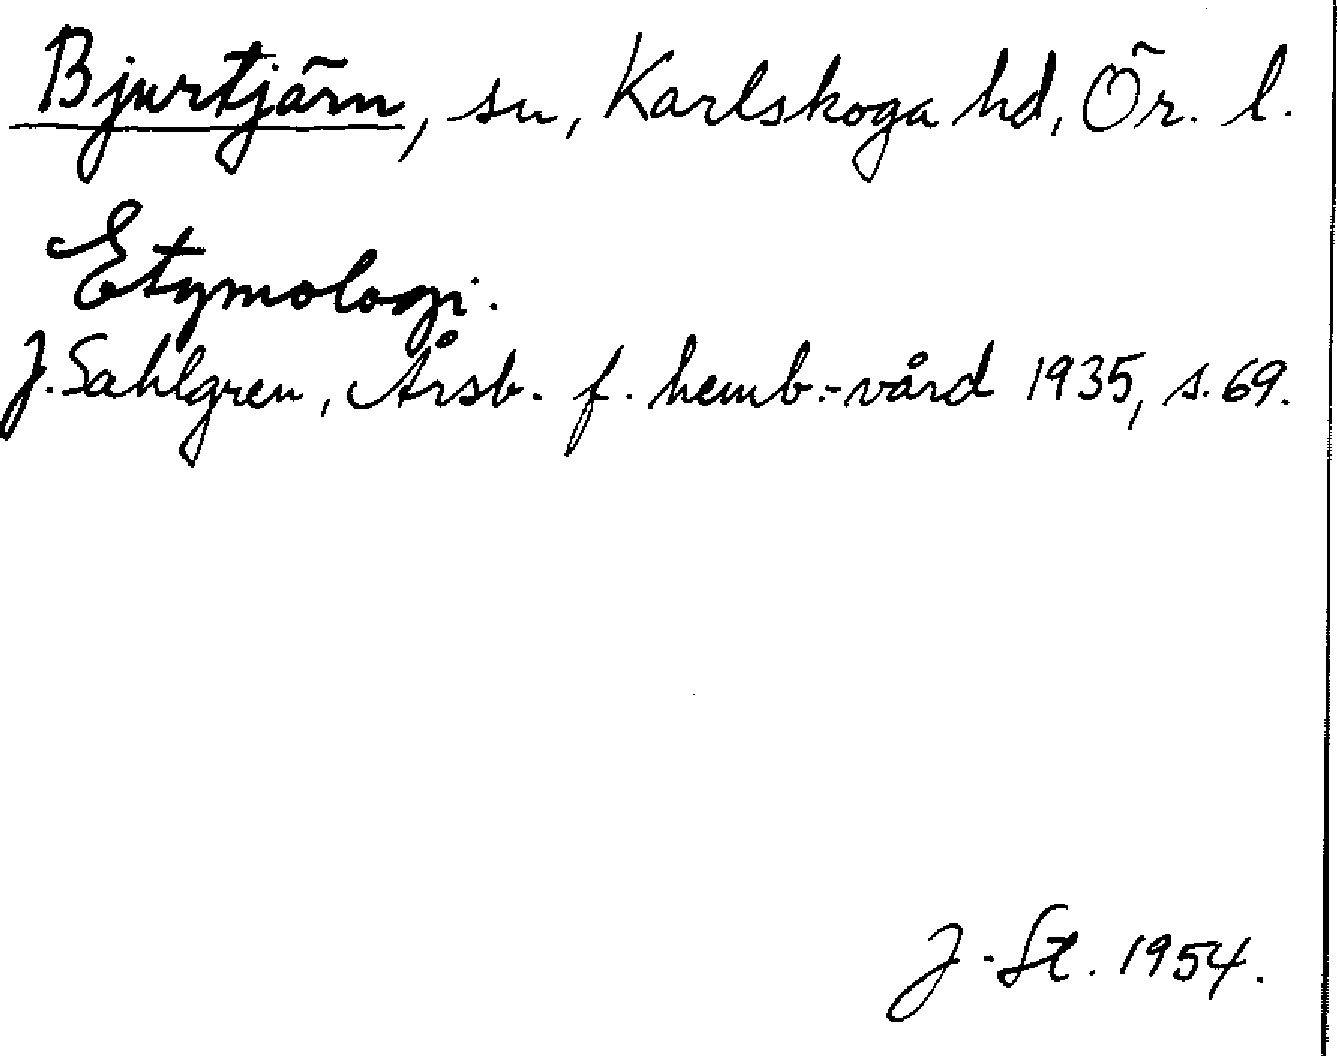 Bjurtjärn, sn, Karlskoga hd, Ör. l.
Etymologi.
J. Sahlgren, Årsb. f. hemb.-vård 1935, s. 69.
J. St. 1954.